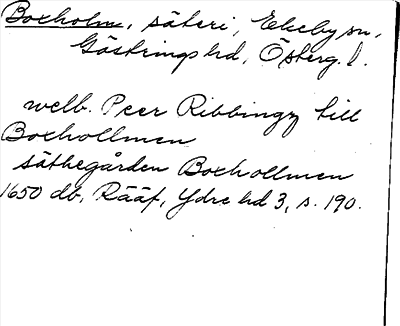 Boxholm, säteri, Ekeby sn,
Göstrings hd, Österg. l.
welb. Peer Ribbingz till
Boxhollmen
säthegården Boxhollmen
1650 db, Rääf, Ydre hd 3, s. 190.